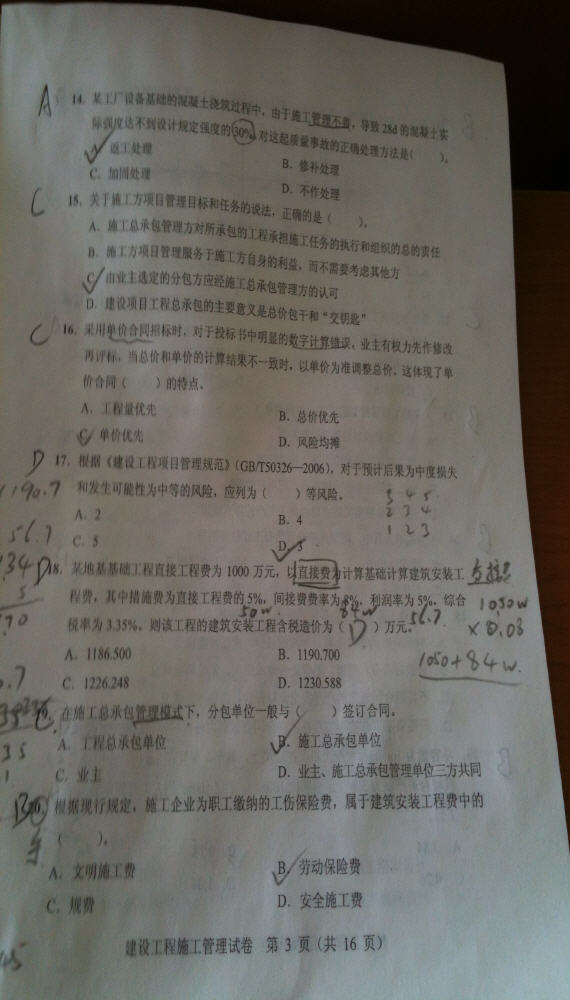 A 14. 某工厂设备基础的混凝土浇筑过程中，由于施工管理不善，导致 28d 的混凝土实
际强度达不到设计规定强度的 30%，对这起质量事故的正确处理方法是(　　)。
A. 返工处理 B. 修补处理
C. 加固处理 D. 不作处理
C 15. 关于施工方项目管理目标和任务的说法，正确的是(　　)。
A. 施工总承包管理方对所承包的工程承担施工任务的执行和组织的总的责任
B. 施工方项目管理服务于施工方自身的利益，而不需要考虑其他方
C. 由业主选定的分包方应经施工总承包管理方的认可
D. 建设项目工程总承包的主要意义是总价包干和“交钥匙”
C 16. 采用单价合同招标时，对于投标书中明显的数字计算错误，业主有权力先作修改
再评标，当总价和单价的计算结果不一致时，以单价为准调整总价，这体现了单
价合同(　　)的特点。
A. 工程量优先 B. 总价优先
C. 单价优先 D. 风险均摊
D 17. 根据《建设工程项目管理规范》(GB/T50326—2006)，对于预计后果为中度损失
1190.7 和发生可能性为中等的风险，应列为(　　)等风险。 3 4 5
A. 2 B. 4 2 3 4
C. 5 D. 3 1 2 3
56.7
D 18. 某地基基础工程直接工程费为 1000 万元，以直接费为计算基础计算建筑安装工
程费，其中措施费为直接工程费的 5%，间接费费率为 8%，利润率为 5%，综合 1050w
50w 84w 56.7 ×0.08
税率为 3.35%，则该工程的建筑安装工程含税造价为( D )万元。
A. 1186.500 B. 1190.700 1050+84w
C. 1226.248 D. 1230.588
19. 在施工总承包管理模式下，分包单位一般与(　　)签订合同。
A. 工程总承包单位 B. 施工总承包单位
C. 业主 D. 业主、施工总承包管理单位三方共同
B 20. 根据现行规定，施工企业为职工缴纳的工伤保险费，属于建筑安装工程费中的
(　　)。
A. 文明施工费 B. 劳动保险费
C. 规费 D. 安全施工费
建设工程施工管理试卷 第 3 页（共 16 页）